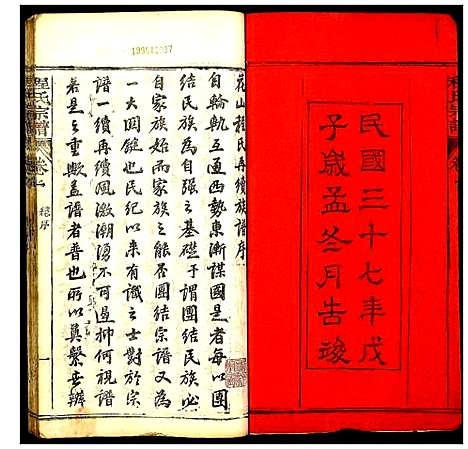 民國三十七年戊
子歲孟冬月告竣
程氏宗譜
卷首
199512037
花山程氏再續族譜序
自輪軌互通西勢東漸謀國是者每以團
結民族為自強之基礎于謂團結民族必
自家族始而家族之能否團結宗譜又為
一大關鍵也民紀以來有識之士對於宗
譜一續再續風激潮湧不可遏抑何視譜
若是之重歟蓋譜者普也所以奠繫世辨
程氏宗譜
卷首
續序
一